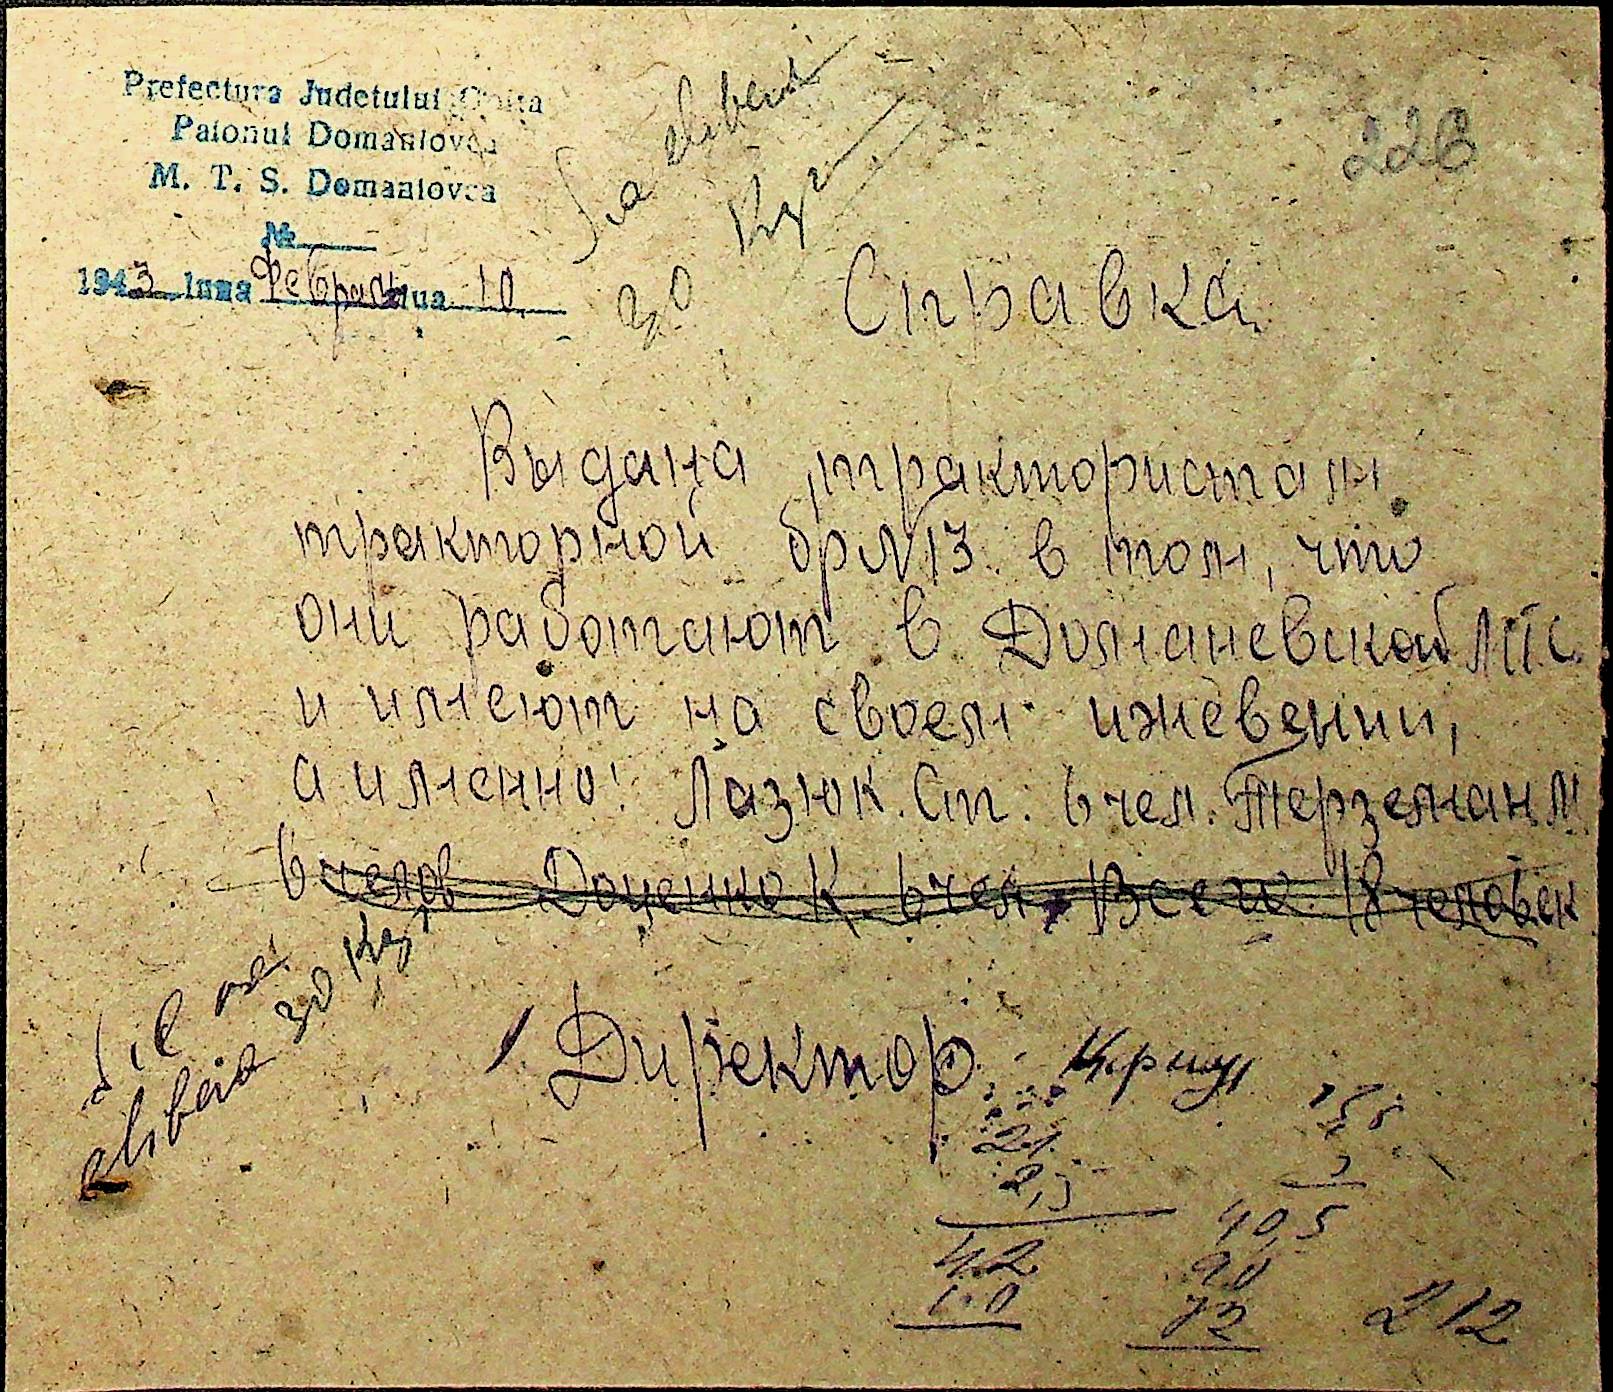 Prefectura Judetului Golta
Raionul Domaniovca
M. T. S. Domaniovca
№
1943 luna Февраля ziua 10
226
Sa elibera
30 Kgr
Справка
Выдана трактористам
тракторной бр №13 в том, что
они работают в Доманевской МТС
и имеют на своем ижевении,
а именно: Лазюк. Ст. 6 чел. Терземан М
6 челов Доценко К. 6 чел. Всего 18 человек
elibera 30 Kgr
Директор
21
2,3
42
6.0
40,5
90
72
212